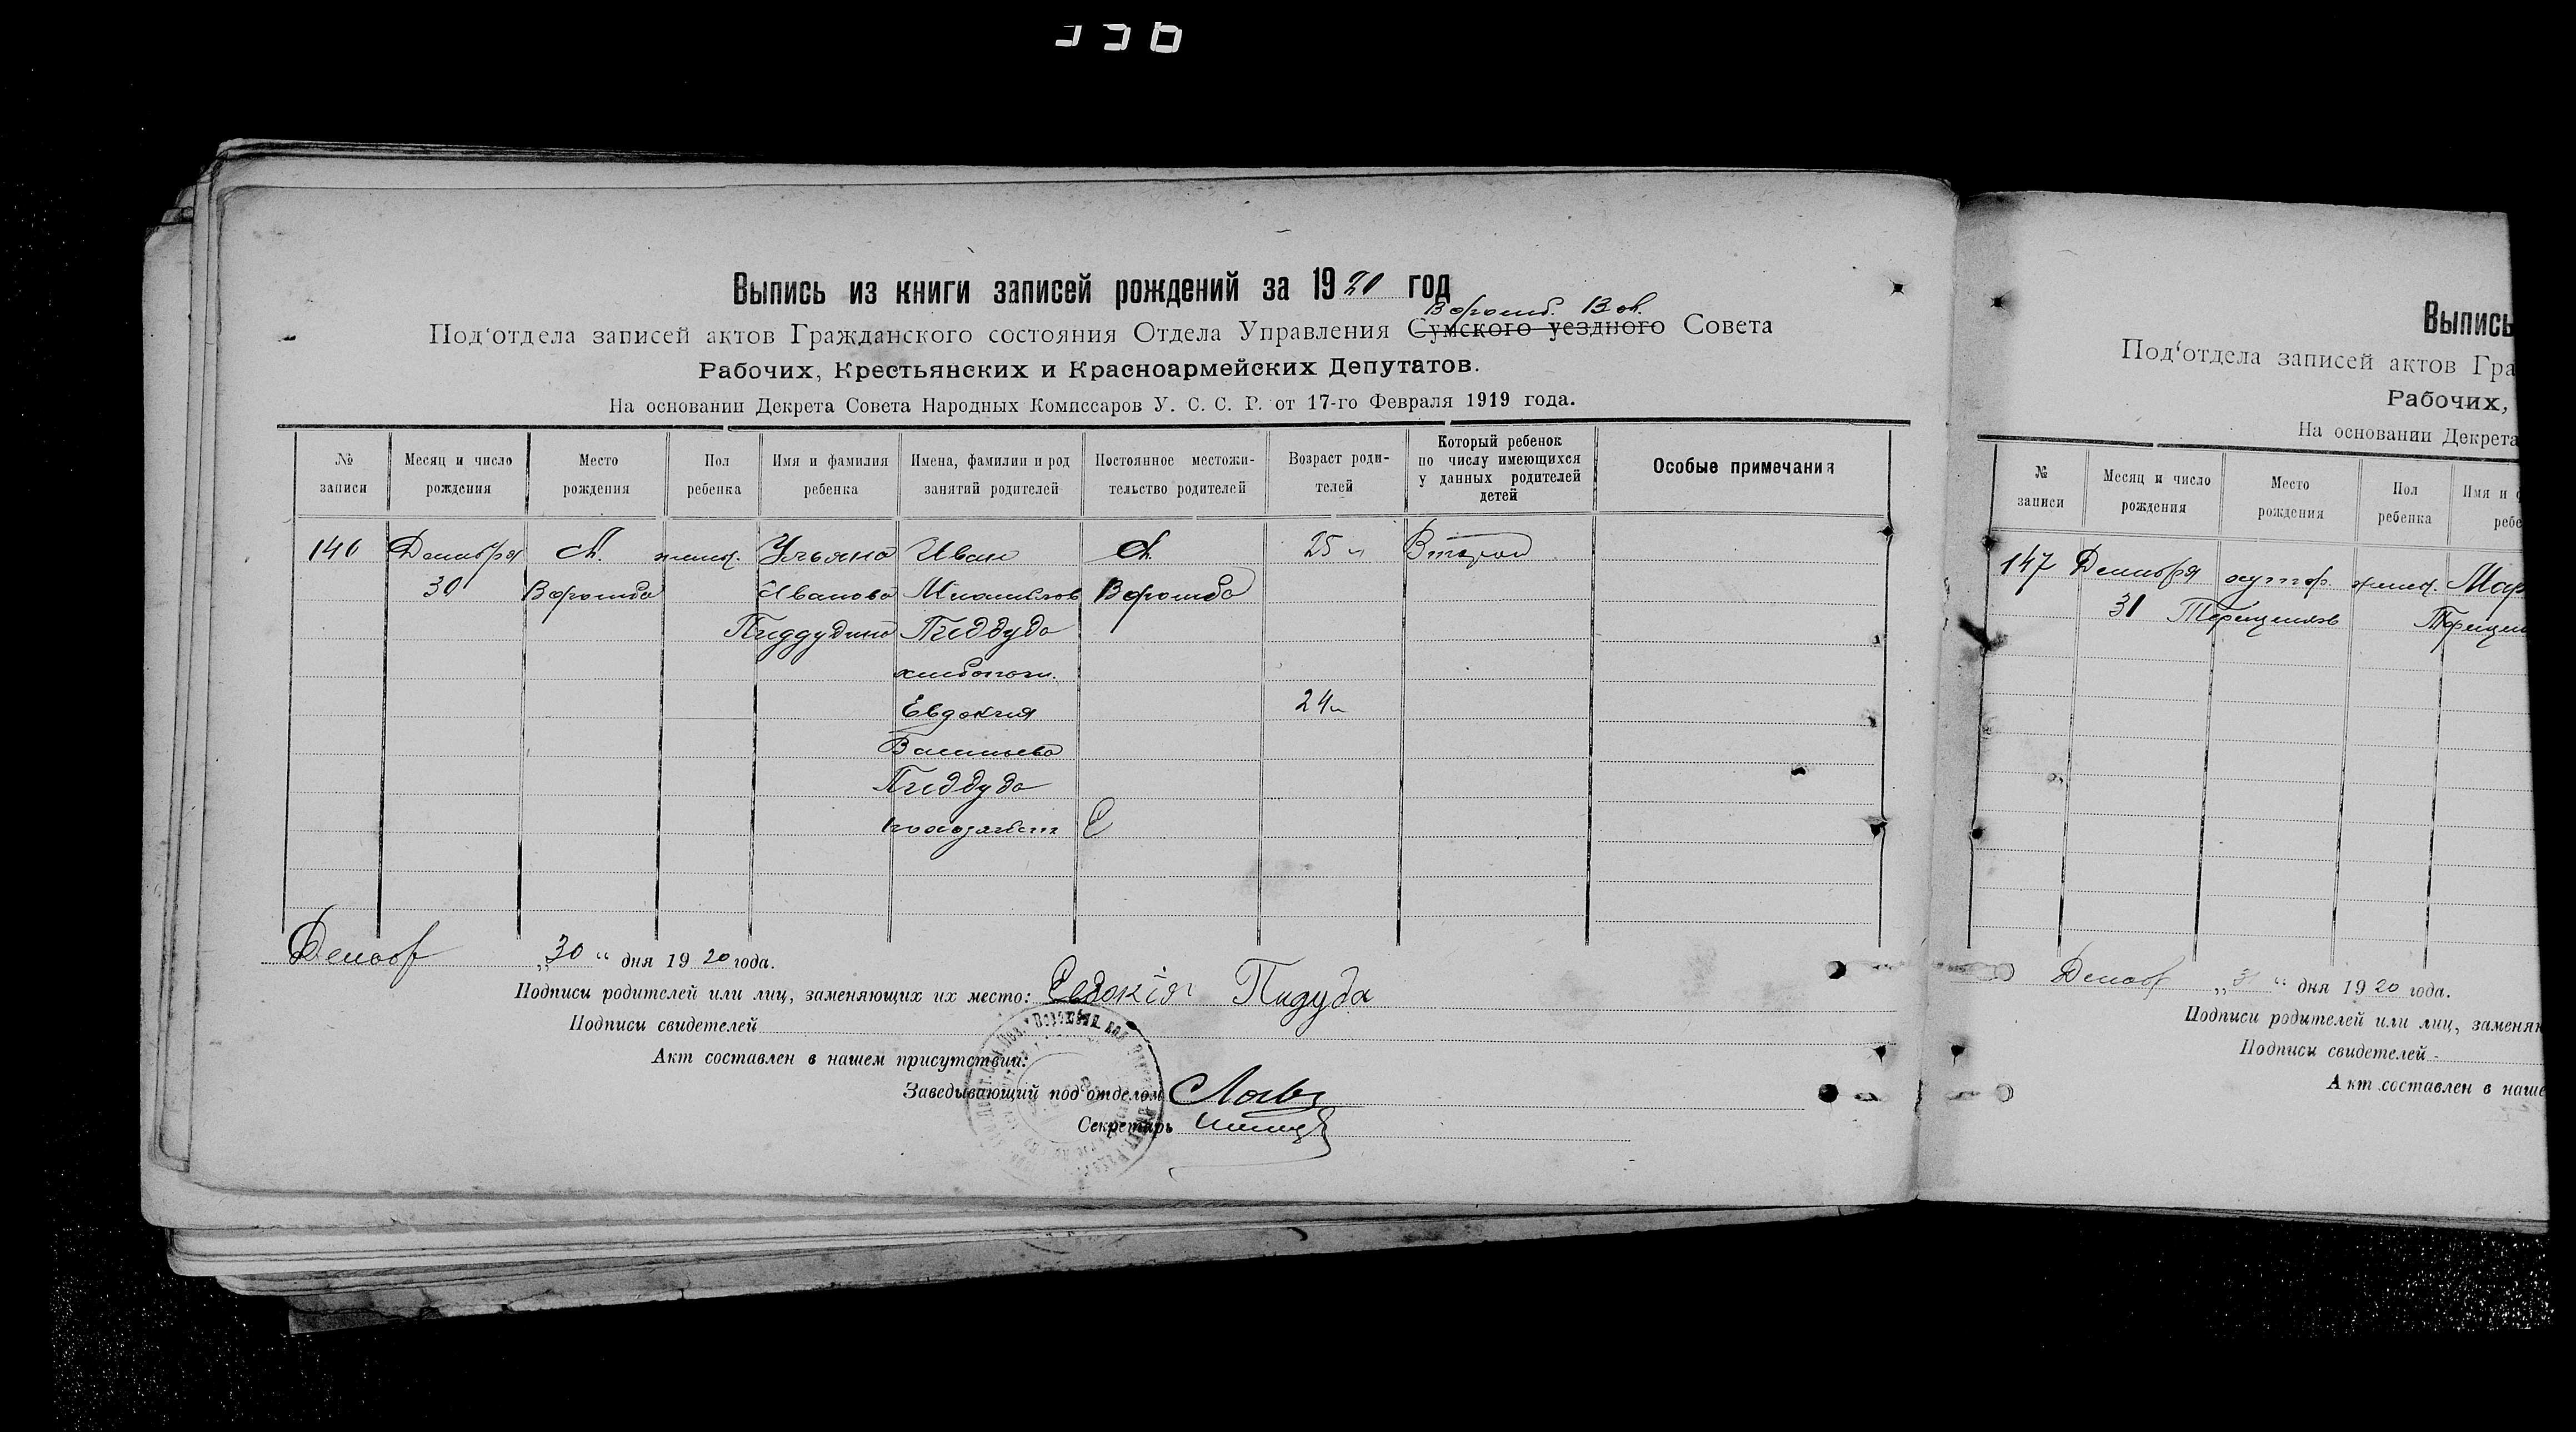 Выпись из книги записей рождений за 1920 год
Ворожб. Вол.
Под‘отдела записей актов Гражданского состояния Отдела Управления Сумского уездного Совета
Рабочих, Крестьянских и Красноармейских Депутатов.
На основании Декрета Совета Народных Комиссаров У. С. С. Р. от 17-го Февраля 1919 года.
№ записи
Месяц и число рождения
Место рождения
Пол ребенка
Имя и фамилия ребенка
Имена, фамилии и род занятий родителей
Постоянное местожительство родителей
Возраст родителей
Который ребенок по числу имеющихся у данных родителей детей
Особые примечания
146 Декабря женс. Ульяна Иван 25 Второй
30 Ворожба Иванова Ворожба
Пиддудына Пиддуда
Евдокия 24
Пиддуда
Декаб „30“ дня 1920 года.
Подписи родителей или лиц, заменяющих их место: Евдокія Пидуда
Подписи свидетелей
Акт составлен в нашем присутствии:
Заведывающий под‘отделом
Секретарь
Выпись
Под‘отдела записей актов Гра
Рабочих,
На основании Декрета
№ записи
Месяц и число рождения
Место рождения
Пол ребенка
Имя и ф
ребе
147 Декабря хутор. женс. Мар
31
Декаб „31“ дня 1920 года.
Подписи родителей или лиц, заменяю
Подписи свидетелей
Акт составлен в наше